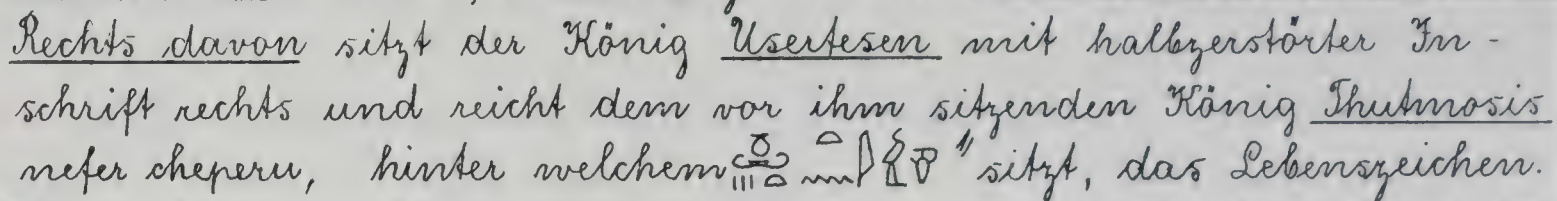 Rechts davon sitzt der König Usertesen mit halbzerstörter In-
schrift rechts und reicht dem vor ihm sitzenden König Thutmosis
nefer cheperu, hinter welchem 1) sitzt, das Lebenszeichen.